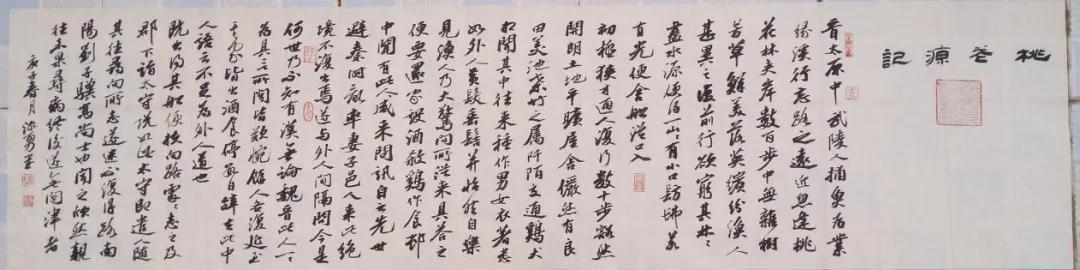 桃花源記
晋太原中武陵人捕魚为業
緣溪行忘路之遠近忽逢桃
花林夹岸數百步中無雜樹
芳草鮮美落英繽紛漁人
甚異之復前行欲窮其林林
盡水源便得一山山有小口髣髴若
有光便舍船從口入
初極狹才通人復行數十步豁然
開朗土地平曠屋舍儼然有良
田美池桑竹之屬阡陌交通鷄犬
相聞其中往来種作男女衣著悉
如外人黄髮垂髫并怡然自樂
見漁人乃大驚問所從来具答之
便要還家設酒殺鷄作食村
中聞有此人咸来問訊自云先世
避秦時亂率妻子邑人来此絕
境不復出焉遂与外人間隔問今是
何世乃不知有漢無論魏晋此人一一
为具言所聞皆歎惋餘人各復延至
其家皆出酒食停數日辭去此中
人語云不足为外人道也
既出得其船便扶向路處處志之及
郡下詣太守說如此太守即遣人隨
其往尋向所志遂迷不復得路南
陽劉子驥高尚士也聞之欣然親
往未果尋病終後遂無問津者
庚子春月